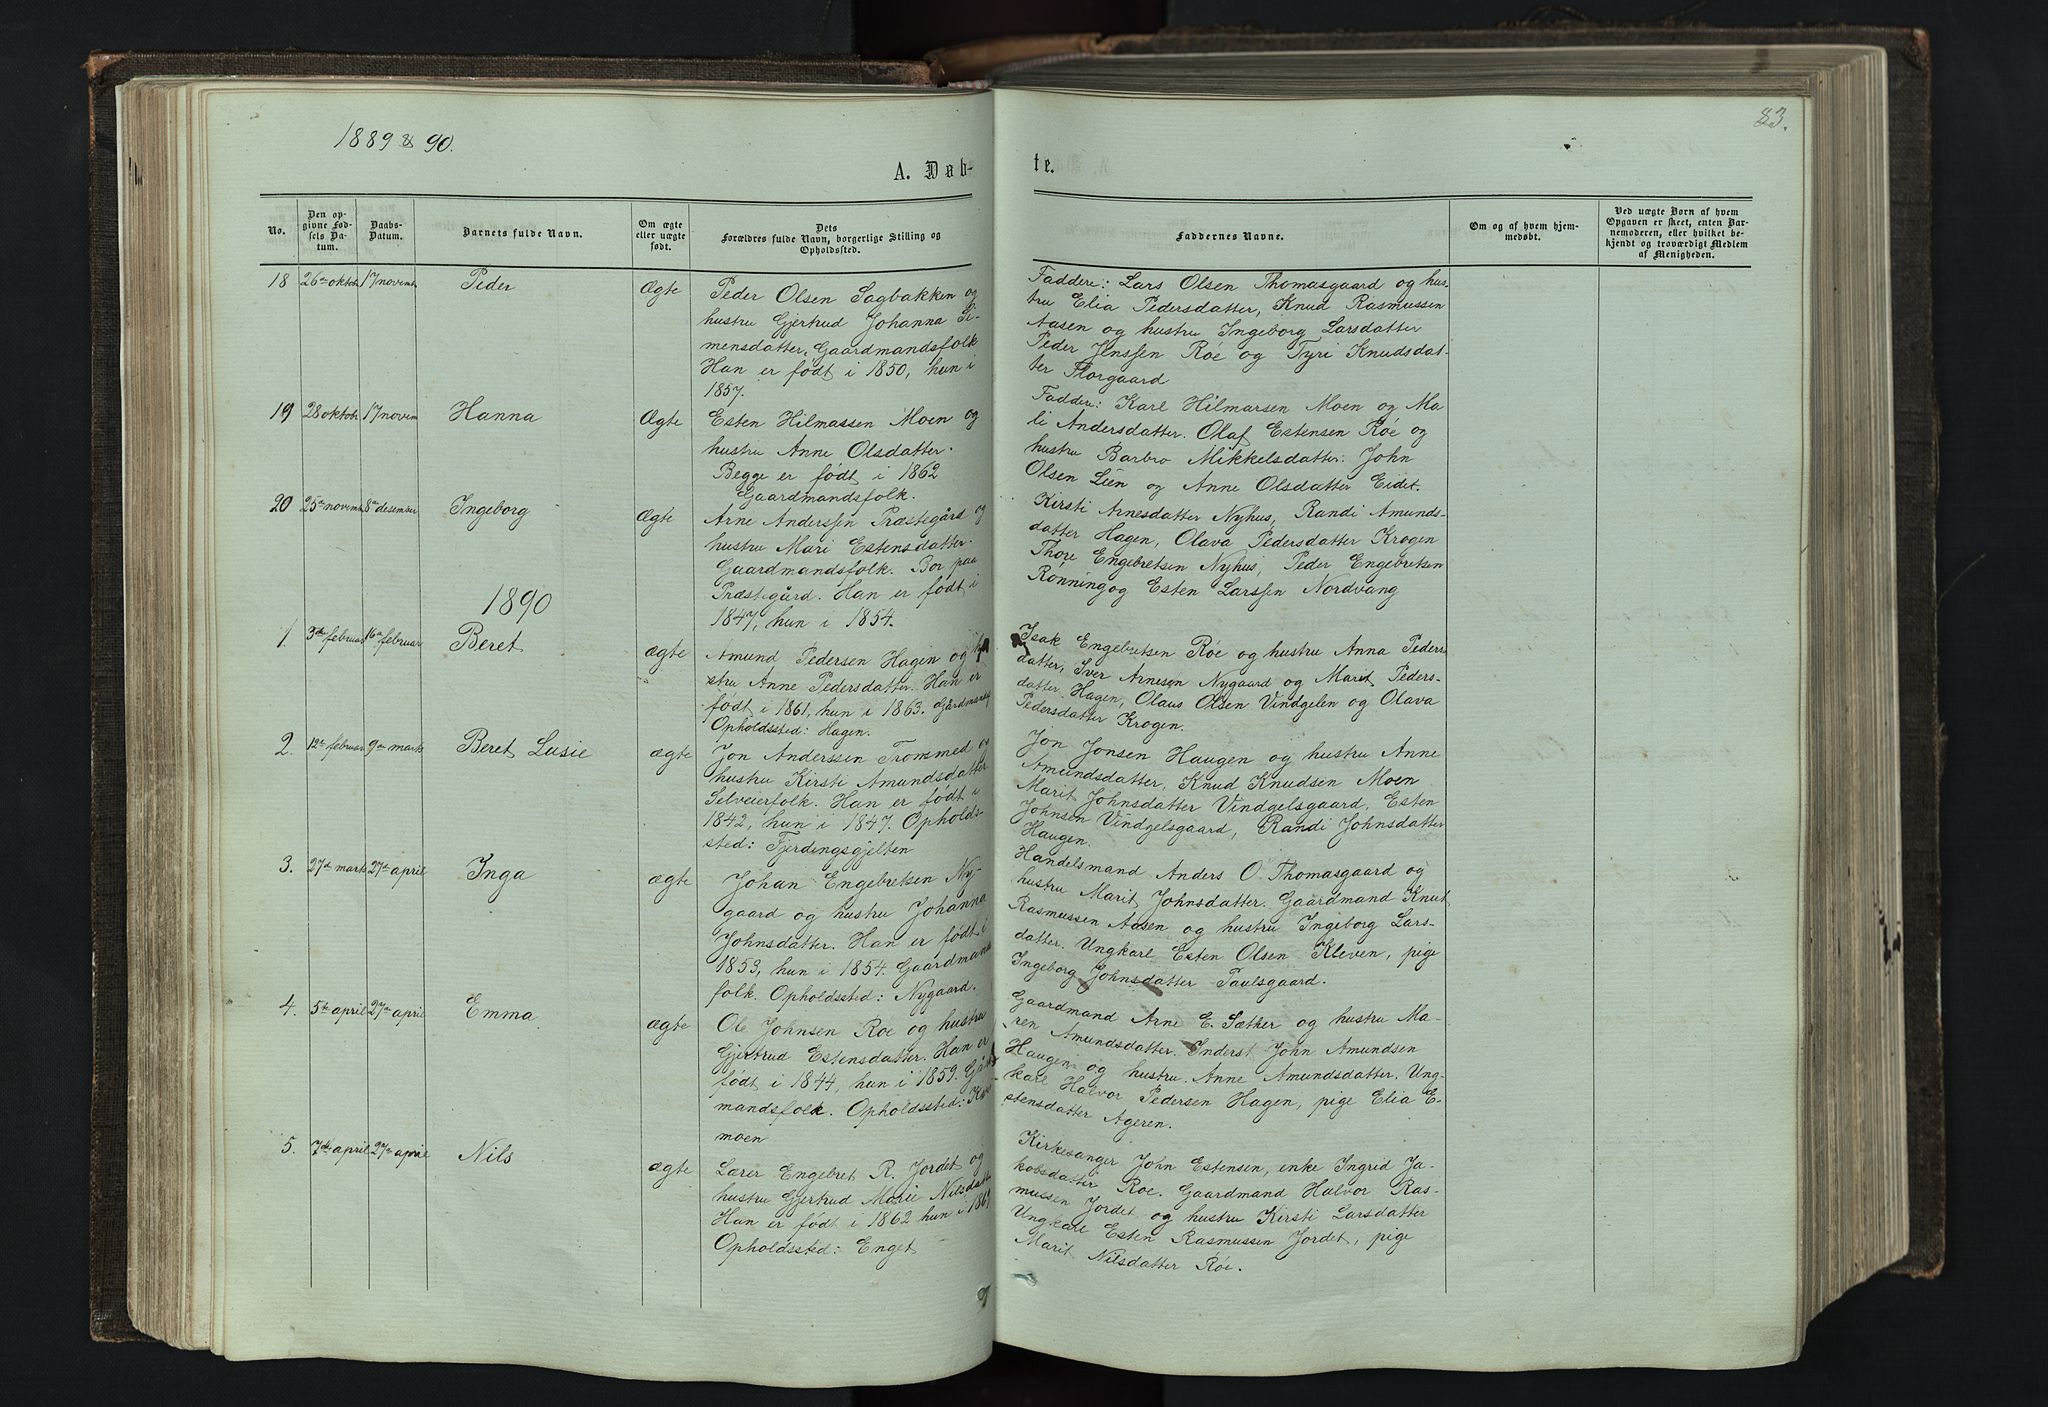 1889 & 90.
83.
A. Døb-
te.
No.
Den op-
givne Fød-
sels Da-
tum.
Daabs-
Datum.
Barnets fulde Navn.
Om ægte
eller uægte
født.
Dets
Forældres fulde Navn, borgerlige Stilling og
Opholdssted.
Faddernes Navne.
Om og af hvem hjem-
medøbt.
Ved uægte Børn af hvem
Opgaven er skeet, enten Bar-
nemoderen, eller hvilket be-
kjendt og troværdigt Medlem
af Menigheden.
18 26de oktob. 17 novemb. Peder Ægte
Peder Olsen Sagbakken og
hustru Gjertrud Johanna Si-
mensdatter, Gaardmandsfolk
Han er født i 1850, hun i
1857.
Faddere: Lars Olsen Thomasgaard og hus-
tru Elia Pedersdatter, Knud Rasmussen
Aasen og hustru Ingeborg Larsdatter
Peder Jenssen Røe og Tyri Knudsdat-
ter Storgaard
19 28 oktob. 17 novem Hanna Ægte
Esten Hilmassen Moen og
hustru Anne Olsdatter.
Begge er født i 1862
Gaardmandsfolk.
Fadder: Karl Hilmarsen Moen og Ma-
li Andersdatter. Olaf Estensen Røe og
hustru Barbro Mikkelsdatter. John
Olsen Lien og Anne Olsdatter Eidet.
20 25de novemb. 8de desember Ingeborg Ægte
Arne Anderssen Præstegård og
hustru Mari Estensdatter.
Gaardmandsfolk. Bor paa
Præstegård. Han er født i
1847, hun i 1854.
Kirsti Arnesdatter Nyhus, Randi Amunds-
datter Hagen, Olava Pedersdatter Krogen
Thore Engebretsen Nyhus, Peder Engebretsen
Rønning og Esten Larssen Nordvang
1890
1. 3de februar 16de februar Beret ægte
Amund Pedersen Hagen og hu-
stru Anne Pedersdatter. Han er
født i 1861, hun i 1863. Gårdmandsf.
Opholdssted: Hagen.
Isak Engebretsen Røe og hustru Anna Peders-
datter, Iver Arnesen Nygaard og Marit Peders-
datter Hagen, Olaus Olsen Vindgelen og Olava
Pedersdatter Krogen.
2. 12te februar 9de marts Beret Lusie ægte
Jon Anderssen Tronsmed og
hustru Kirsti Amundsdatter
Selveierfolk. Han er født i
1842, hun i 1847. Opholds-
sted: Fjerdingsgjelten
Jon Jonsen Haugen og hustru Anne
Amundsdatter, Knud Knudsen Moen
Marit Johnsdatter Vindgelsgaard, Esten
Johnsen Vindgelsgaard, Randi Johnsdatter
Haugen.
3. 27de marts 27de april Inga ægte
Johan Engebretsen Ny-
gaard og hustru Johanna
Johnsdatter. Han er født i
1853, hun i 1854. Gaardmands
folk. Opholdssted: Nygaard.
Handelsmand Anders O. Thomasgaard og
hustru Marit Johnsdatter. Gaardmand Knut
Rasmussen Aasen og hustru Ingeborg Lars-
datter. Ungkarl Esten Olsen Kleven, pige
Ingeborg Johnsdatter Paulsgaard.
4. 5te april 27de april Emma ægte
Ole Johnsen Røe og hustru
Gjertrud Estensdatter. Han er
født i 1844, hun i 1859. Gård-
mandsfolk. Opholdssted:
moen
Gaardmand Arne E. Sæther og hustru Ma-
ren Amundsdatter. Inderst John Amundsen
Haugen og hustru Anne Amundsdatter. Ung-
karl Halvor Pedersen Hagen, pige Elia E-
stensdatter Ageren.
5. 7de april 27de april Nils ægte
Lærer Engebret R. Jordet og
hustru Gjertrud Marie Nilsdatter
Han er født i 1862 hun i
Opholdssted: Enget
Kirkesanger John Estensen, enke Ingrid Ja-
kobsdatter Roe. Gaardmand Halvor Ras-
mussen Jordet og hustru Kirsti Larsdatter
Ungkarl Esten Rasmussen Jordet, pige
Marit Nilsdatter Røe.